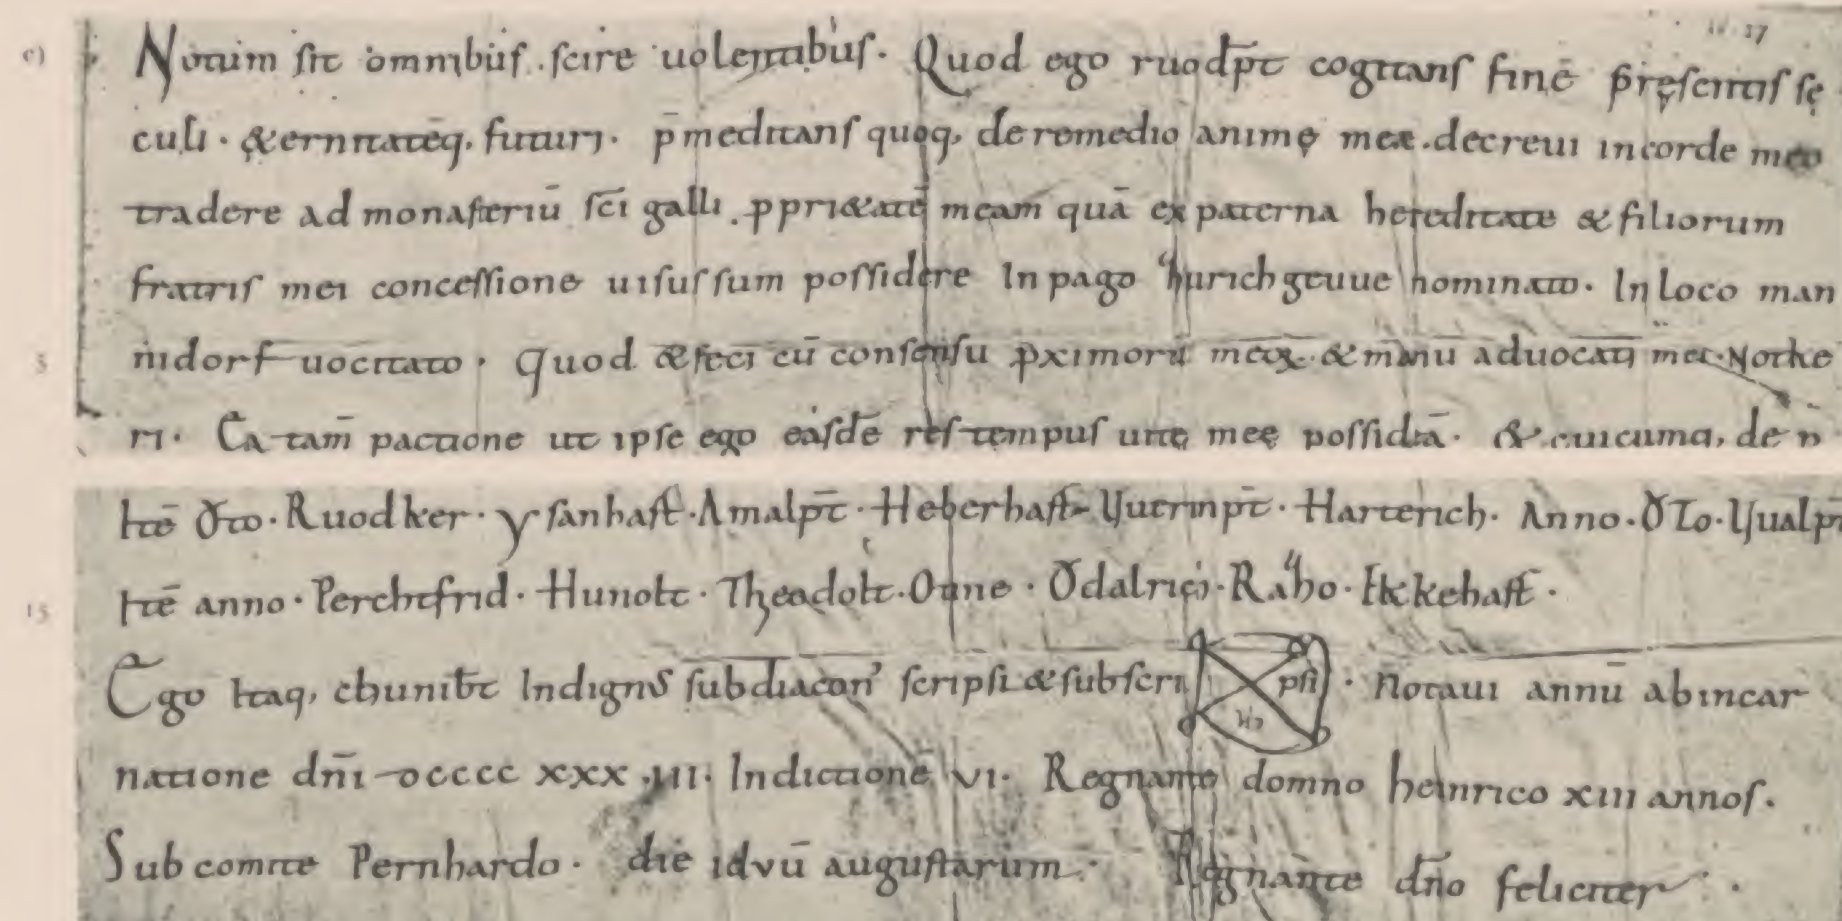 c)
Notum sit omnibus scire uolentibus. Quod ego ruodp̄t cogitans finē p̄ręsentis sę
culi. &ernitatēq, futuri. p̄meditans quoq, deremedio animę meæ. decreui incorde meo
tradere ad monasteriū sc̄i galli. ꝓpri&atē meam quā ex paterna hereditate & filiorum
fratris mei concessione uisus sum possidere In pago zurichgeuue nominato. In loco man
5 nidorf uocitato. Quod & feci cū consensu ꝓximorū meoꝝ. & manu aduocati mei. Notke
ri. Ea tam̄ pactione ut ipse ego easdē res tempus uitę meę possideā. & cuicumq, de n
Itē Oto. Ruodker. ysanhast. Amalp̄t. Heberhast. Uuerinp̄t. Harterich. Anno. Oto. Uualp̄t
15 Itē anno. Perchtfrid. Hunolt. Theadolt. Otine. Odalrici. Raho. Ekkehast.
Ego Itaq, chunib̄t Indignus subdiacon' scripsi & subscri psi. Notaui annū abincar
natione dn̄i DCCCC XXX III. Indictione VI. Regnante domno heinrico XIII annos.
Sub comite Pernhardo. die iduū augustarum. Regnante dn̄o feliciter.